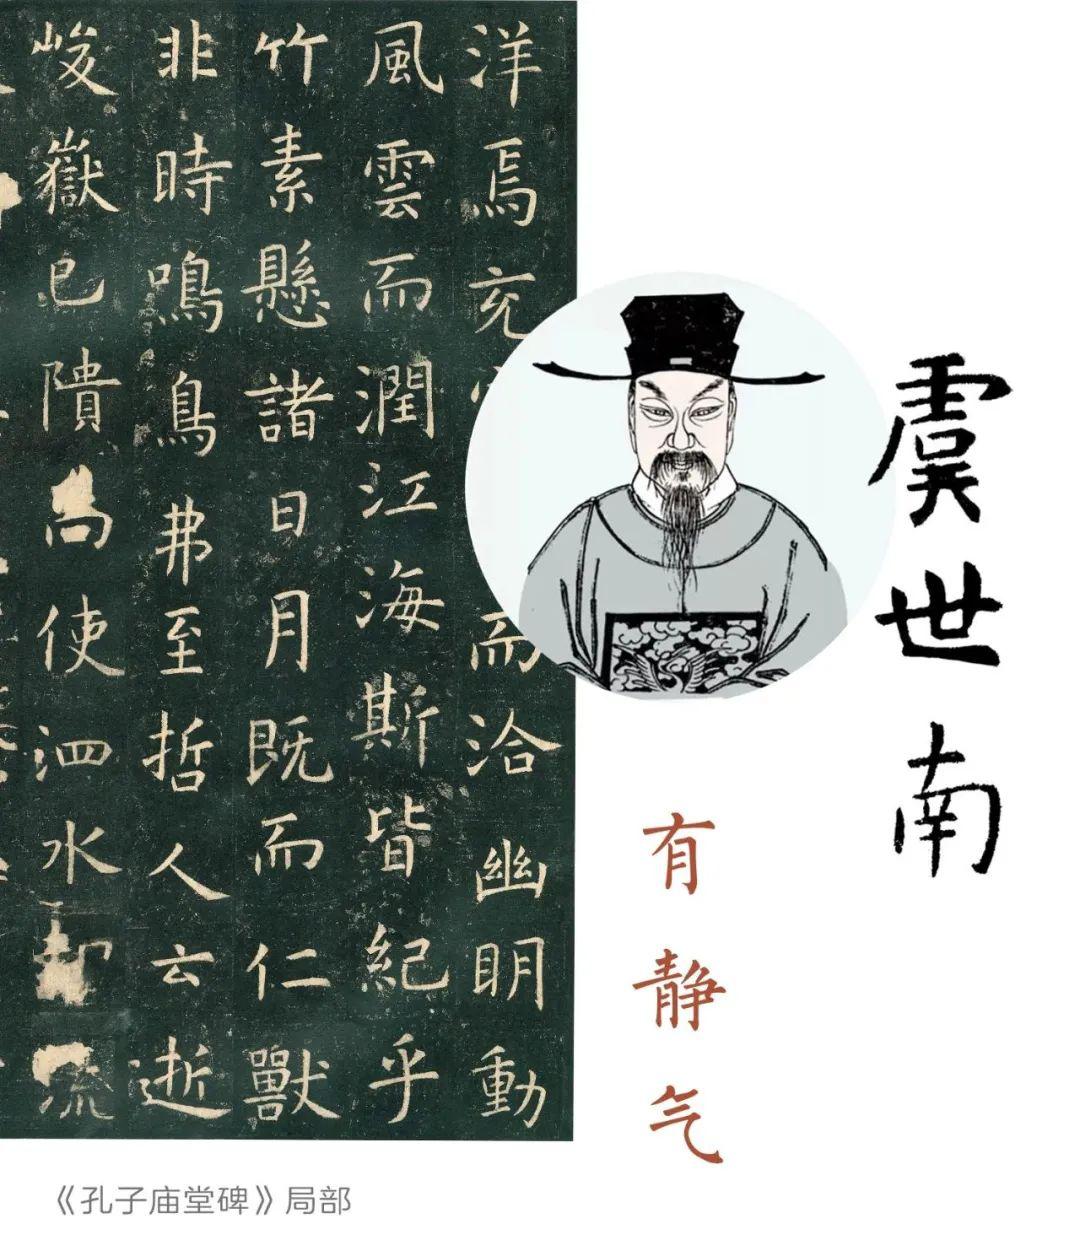 洋焉充而洽幽明動
風雲而潤江海斯皆紀乎
竹素懸諸日月既而仁獸
非時鳴鳥弗至哲人云逝
峻嶽已隤尚使泗水却流
虞世南
有静气
《孔子庙堂碑》局部